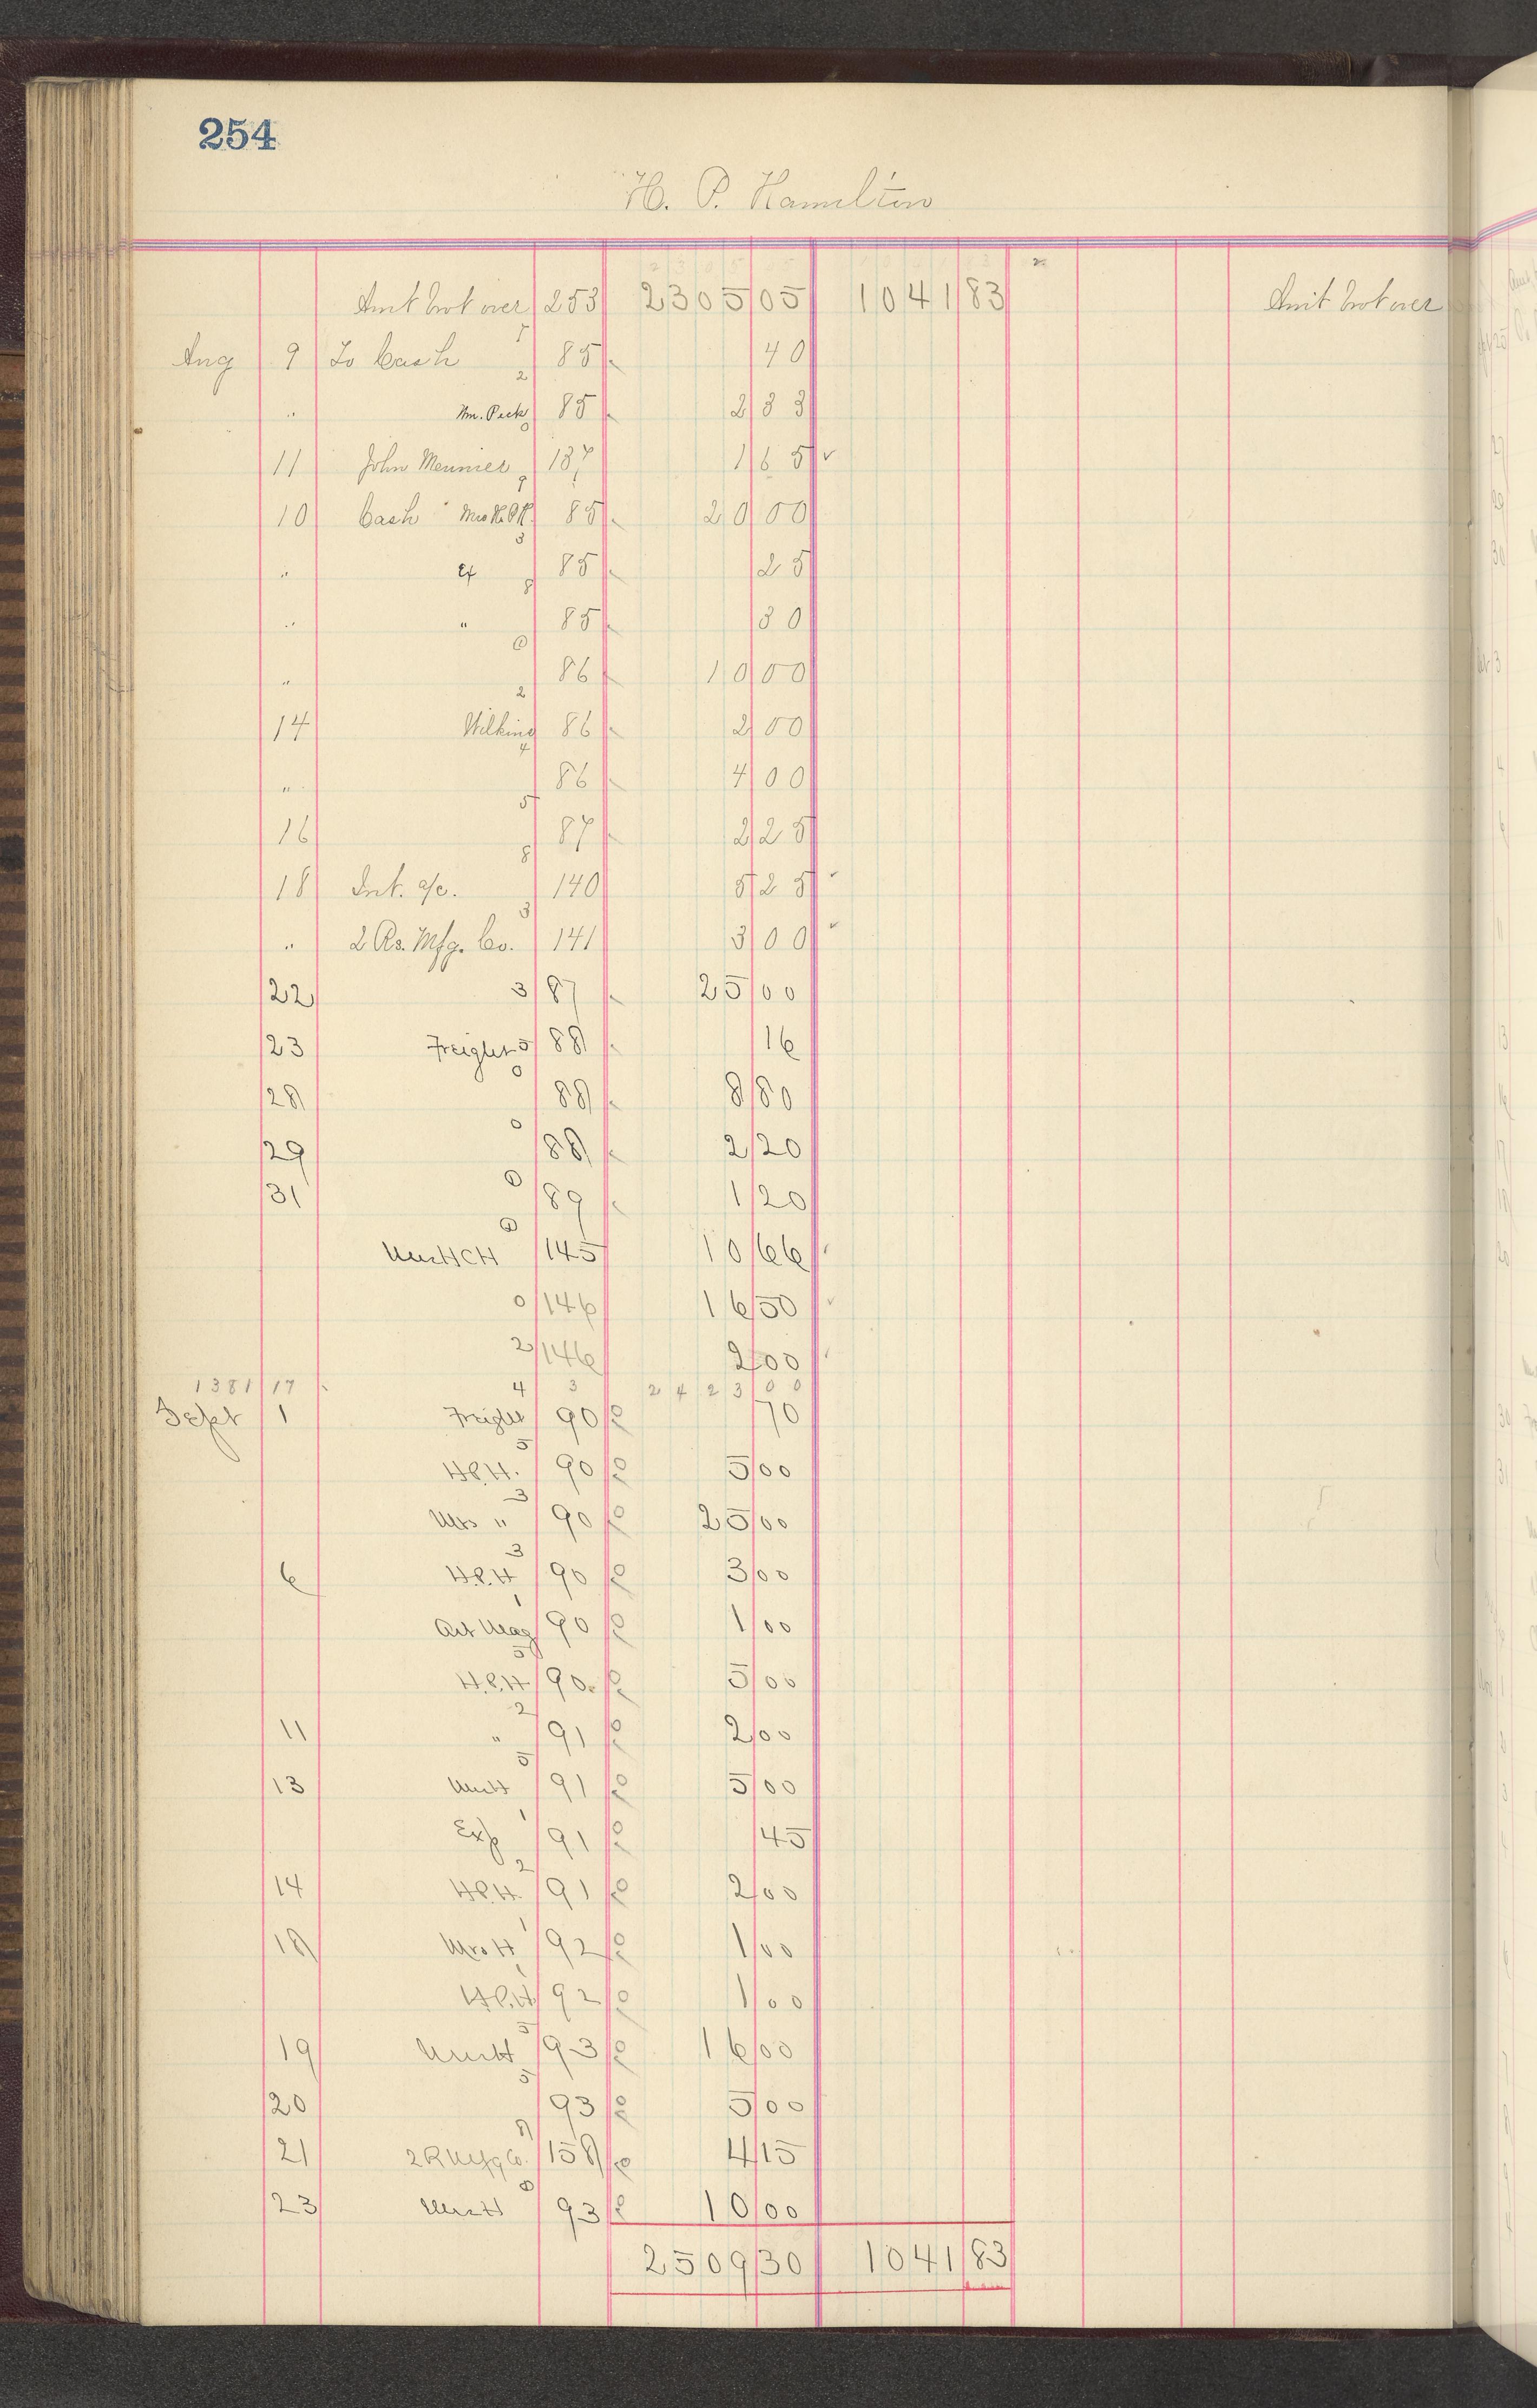 254
H. P. Hamilton
Amt brot over 253 2305 05 1041 83 Amt brot over
Aug 9 To Cash 85 40
" Wm. Peck 85 2 33
11 John Meunier 137 1 65 ✓
10 Cash Mrs H.P.H. 85 20 00
" Ex 85 25
" " 85 30
" 86 10 00
14 Wilkins 86 2 00
" 86 4 00
16 87 2 25
18 Int. a/c. 140 5 25 ✓
" 2 Rs. Mfg. Co. 141 3 00 ✓
22 3 87 25 00
23 Freight 5 88 16
28 88 8 80
29 88 2 20
31 89 1 20
Mrs HCH 145 10 66
0 146 16 50
2 146 2 00
1381 17 4 3 2423 00
Sept 1 Freight 90 70
H.P.H. 90 5 00
Mrs " 90 25 00
6 H.P.H 90 3 00
Art Mag 90 1 00
H.P.H 90 5 00
11 " 91 2 00
13 Mrs H 91 5 00
Exp 91 45
14 H.P.H. 91 2 00
18 Mrs H 92 1 00
H.P.H 92 1 00
19 Mrs H 93 16 00
20 93 5 00
21 2 R Mfg Co. 158 4 15
23 Mrs H 93 10 00
2509 30 1041 83